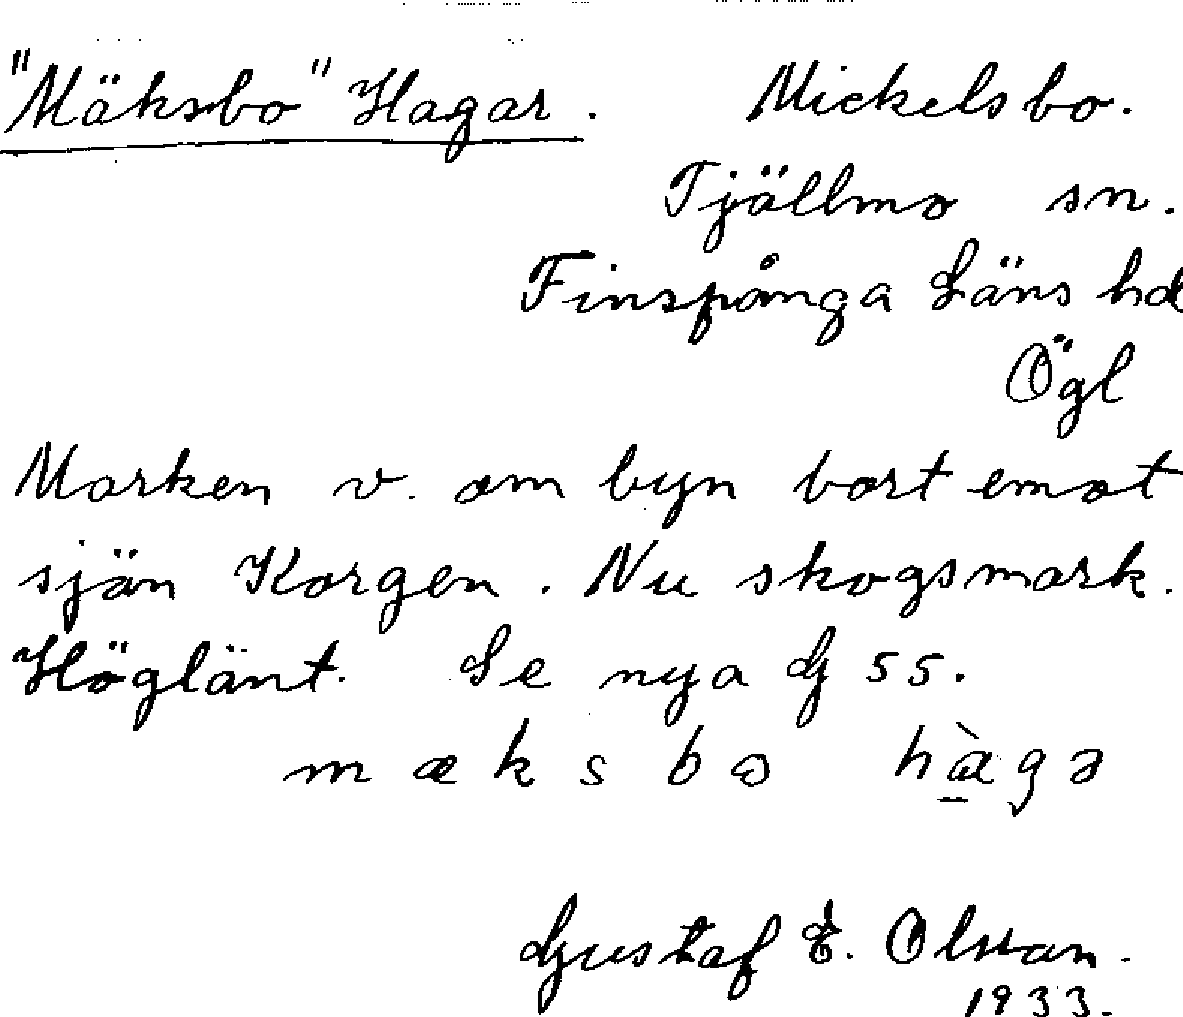 "Mäksbo" Hagar. Mickelsbo.
Tjällmo sn.
Finspånga Läns hd
Ögl
Marken v. om byn bort emot
sjön Korgen. Nu skogsmark.
Höglänt. Se nya G 55.
mæksbɷ hàgə
Gustaf E. Olsson.
1933.